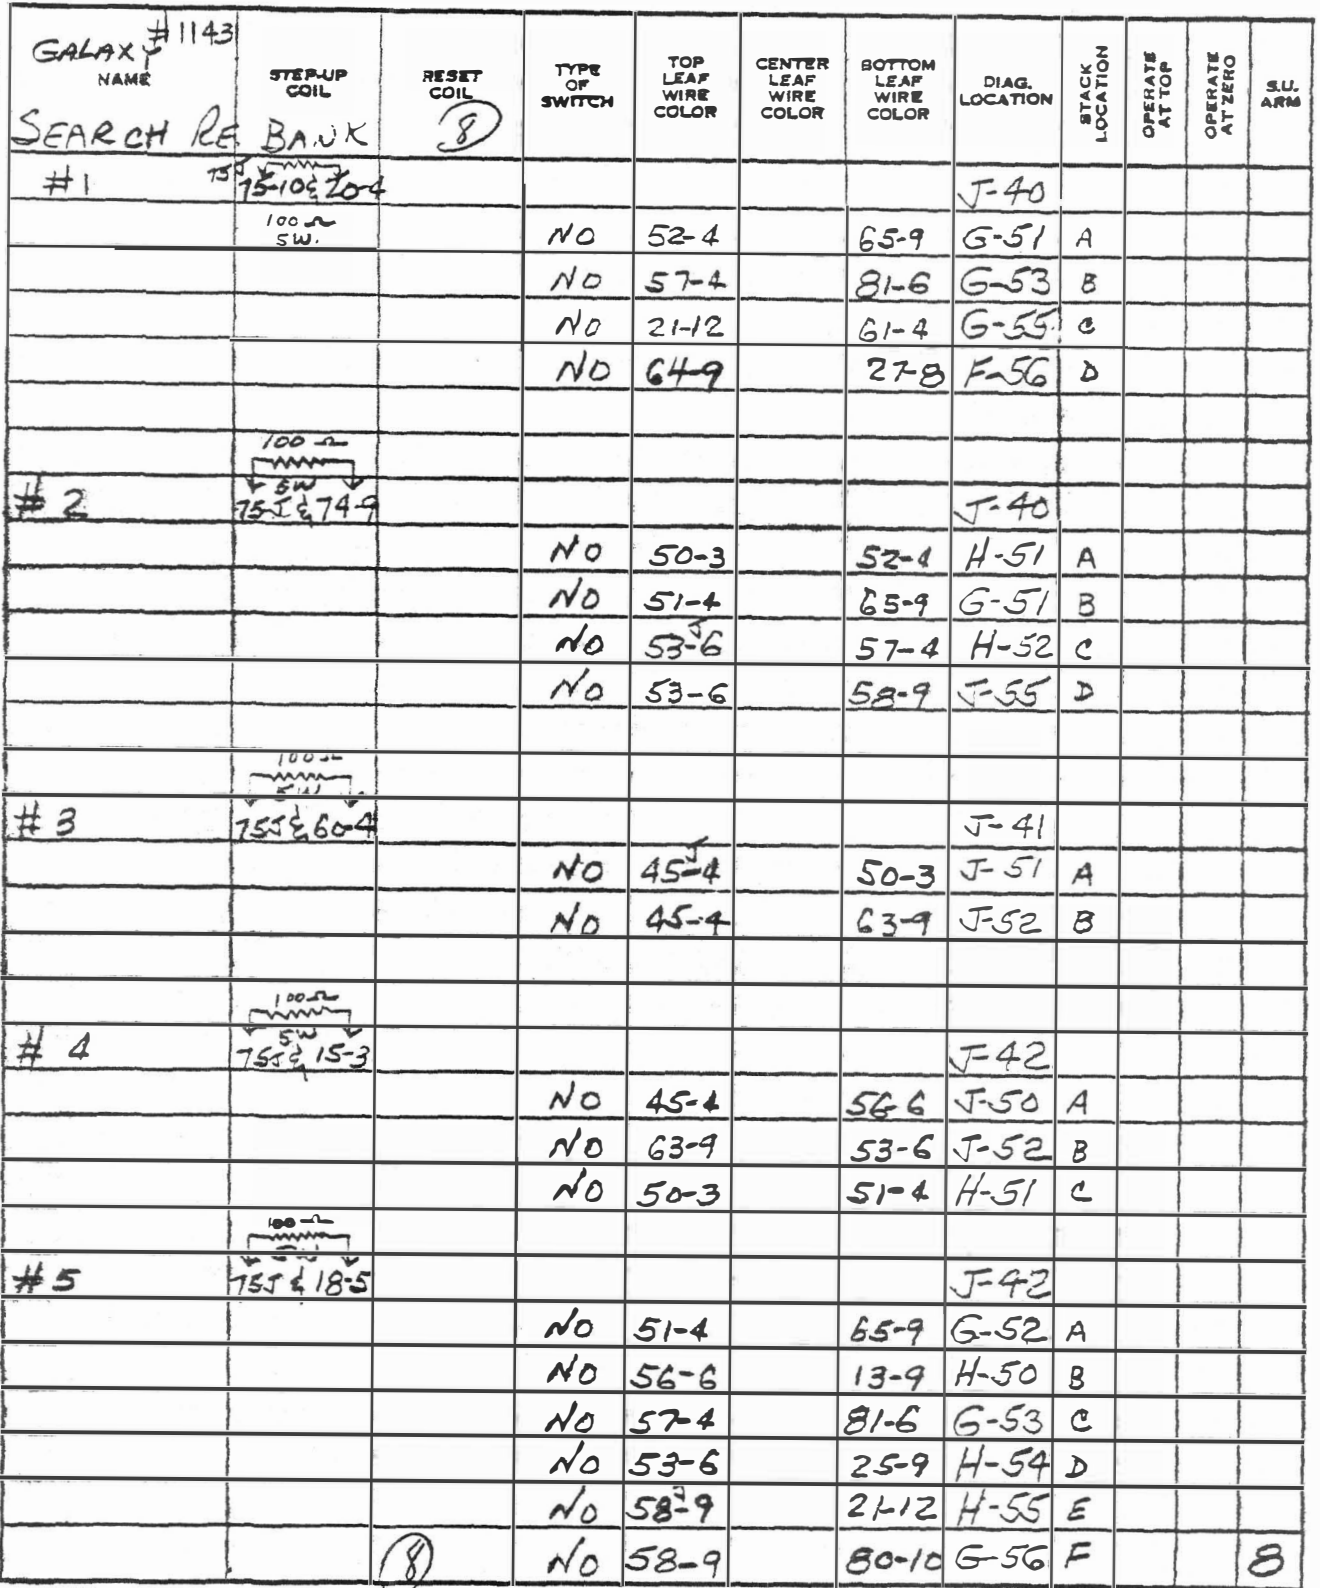 GALAXY #1143
NAME
STEP-UP COIL
RESET COIL
TYPE OF SWITCH
TOP LEAF WIRE COLOR
CENTER LEAF WIRE COLOR
BOTTOM LEAF WIRE COLOR
DIAG. LOCATION
STACK LOCATION
OPERATE AT TOP
OPERATE AT ZERO
S.U. ARM
SEARCH RE BANK 8
#1 75-10 & 20-4 J-40
100 Ω
5W. NO 52-4 65-9 G-51 A
NO 57-4 81-6 G-53 B
NO 21-12 61-4 G-55 C
NO 64-9 27-8 F-56 D
100 Ω
5W
#2 75-J & 74-9 J-40
NO 50-3 52-4 H-51 A
NO 51-4 65-9 G-51 B
NO 53-6 J 57-4 H-52 C
NO 53-6 58-9 J-55 D
100 Ω
5W
#3 75J & 60-4 J-41
NO 45-4 J 50-3 J-51 A
NO 45-4 63-9 J-52 B
100 Ω
5W
#4 75J & 15-3 J-42
NO 45-4 56-6 J-50 A
NO 63-9 53-6 J-52 B
NO 50-3 51-4 H-51 C
100 Ω
#5 75J & 18-5 J-42
NO 51-4 65-9 G-52 A
NO 56-6 13-9 H-50 B
NO 57-4 81-6 G-53 C
NO 53-6 25-9 H-54 D
NO 58-9 J 21-12 H-55 E
8 NO 58-9 80-10 G-56 F 8